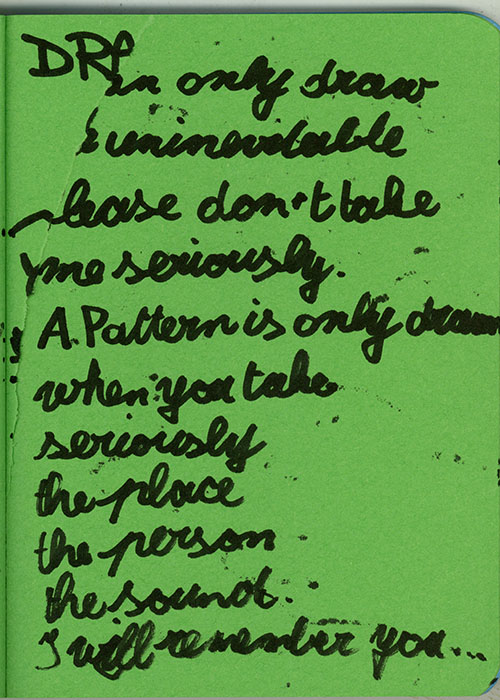 DRA
n only draw
uninevitable
lease don't take
me seriously.
A. Pattern is only drawn
when you take
seriously
the place
the person
the sound.
I will remember you...